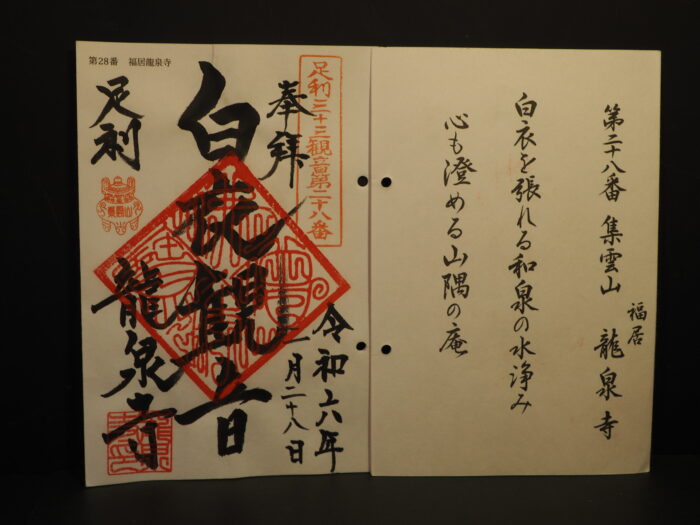 第二十八番 集雲山 福居 龍泉寺
白衣を張れる和泉の水浄み
心も澄める山隅の庵
第28番 福居龍泉寺
足利三十三観音第二十八番
奉拝
令和六年
一月二十八日
白衣観音
足利
龍泉寺